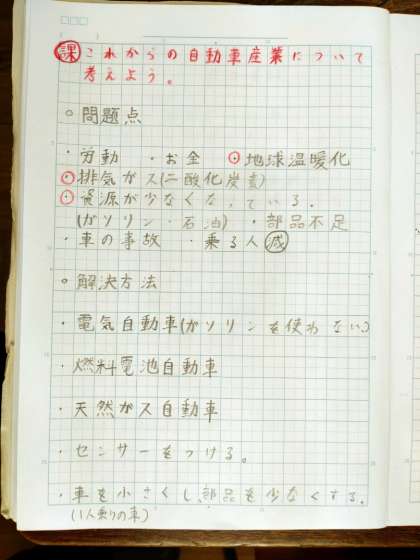 課 これからの自動車産業について
考えよう。
○問題点
・労動 ・お金 ⊙地球温暖化
⊙排気ガス(二酸化炭素)
⊙資源が少なくなっている。
(ガソリン・石油) ・部品不足
・車の事故 ・乗る人減
○解決方法
・電気自動車(ガソリンを使わない)
・燃料電池自動車
・天然ガス自動車
・センサーをつける。
・車を小さくし、部品を少なくする。
(1人乗りの車)